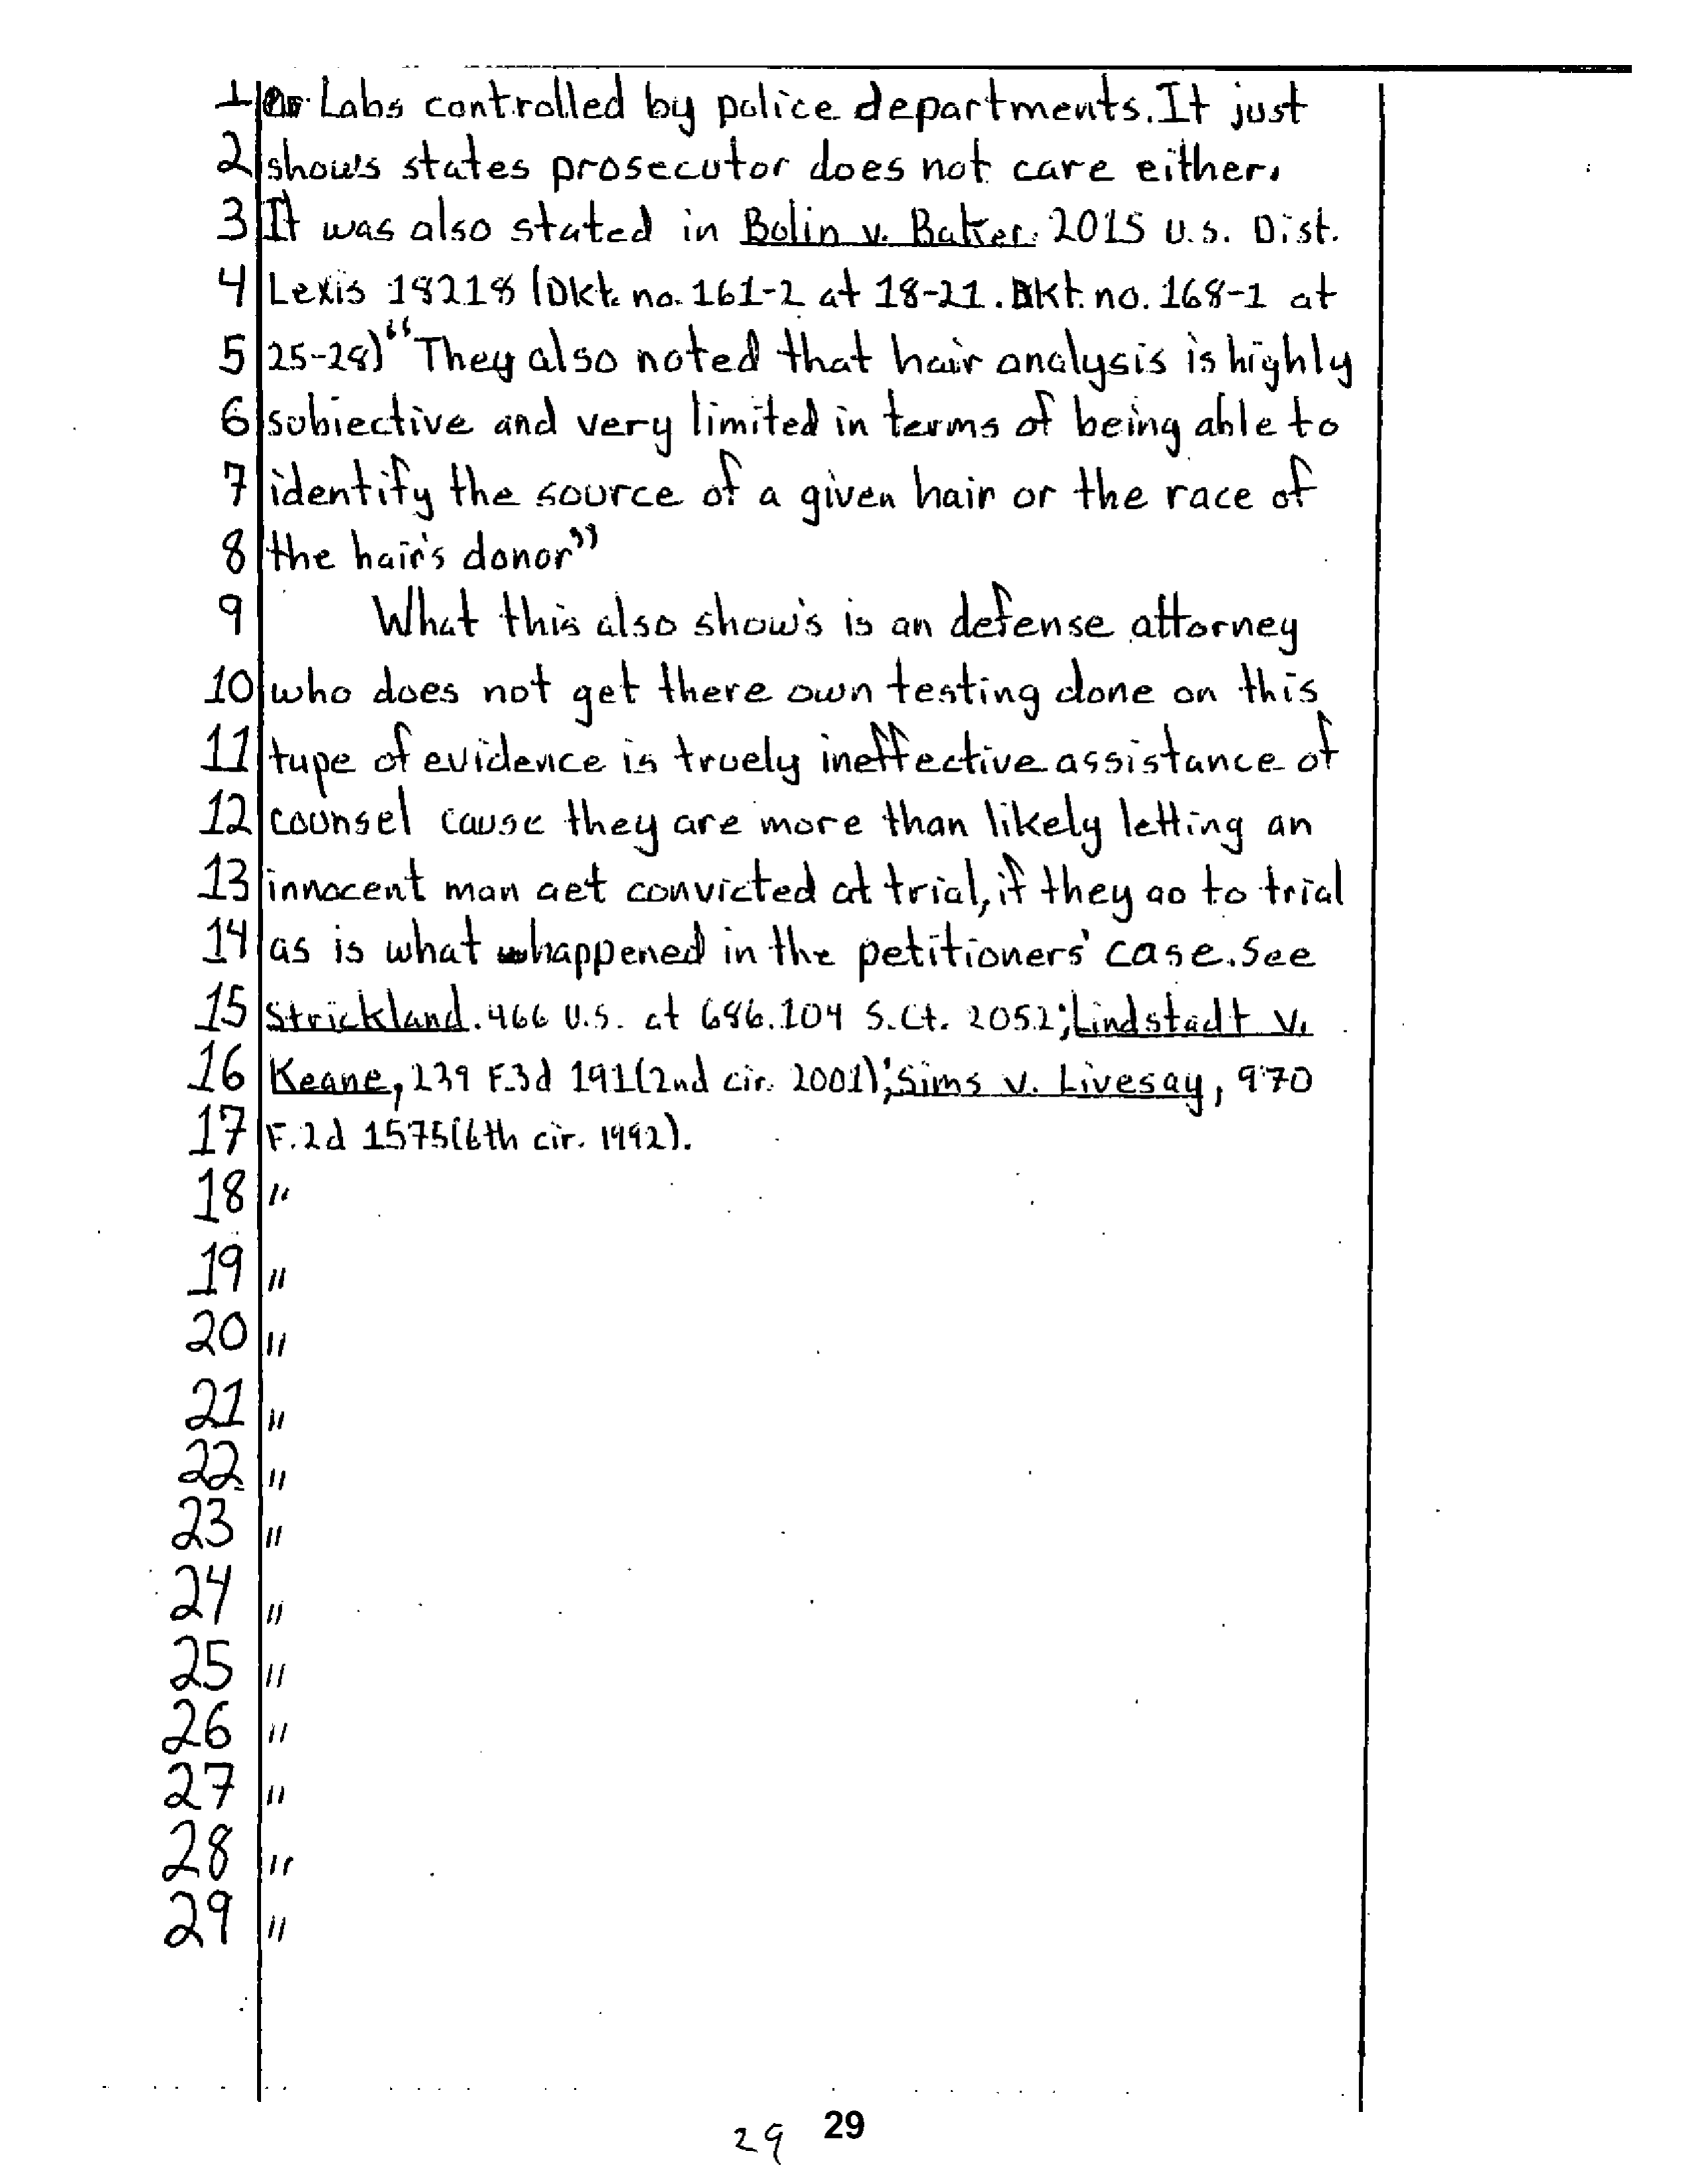 1 or Labs controlled by police departments. It just
2 show's states prosecutor does not care either.
3 It was also stated in Bolin v. Baker. 2015 U.S. Dist.
4 Lexis 18218 (Dkt. no. 161-2 at 18-21. Dkt. no. 168-1 at
5 25-28) "They also noted that hair analysis is highly
6 subjective and very limited in terms of being able to
7 identify the source of a given hair or the race of
8 the hair's donor"
9 What this also show's is an defense attorney
10 who does not get there own testing done on this
11 type of evidence is truely ineffective assistance of
12 counsel cause they are more than likely letting an
13 innocent man get convicted at trial, if they go to trial
14 as is what happened in the petitioners' case. See
15 Strickland. 466 U.S. at 686. 104 S.Ct. 2052; Lindstadt v.
16 Keane, 239 F.3d 191 (2nd cir. 2001); Sims v. Livesay, 970
17 F.2d 1575 (6th cir. 1992).
18 "
19 "
20 "
21 "
22 "
23 "
24 "
25 "
26 "
27 "
28 "
29 "
29 29